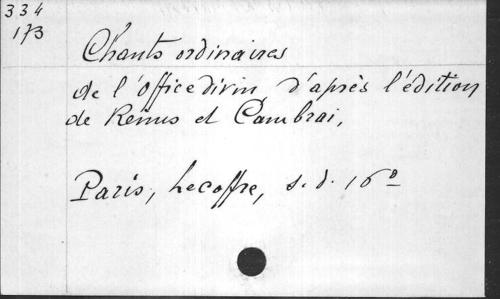 334
173
Chants ordinaires
de l'office divin d'après l'édition
de Reims et Cambrai,
Paris, Lecoffre, s.d. 16º